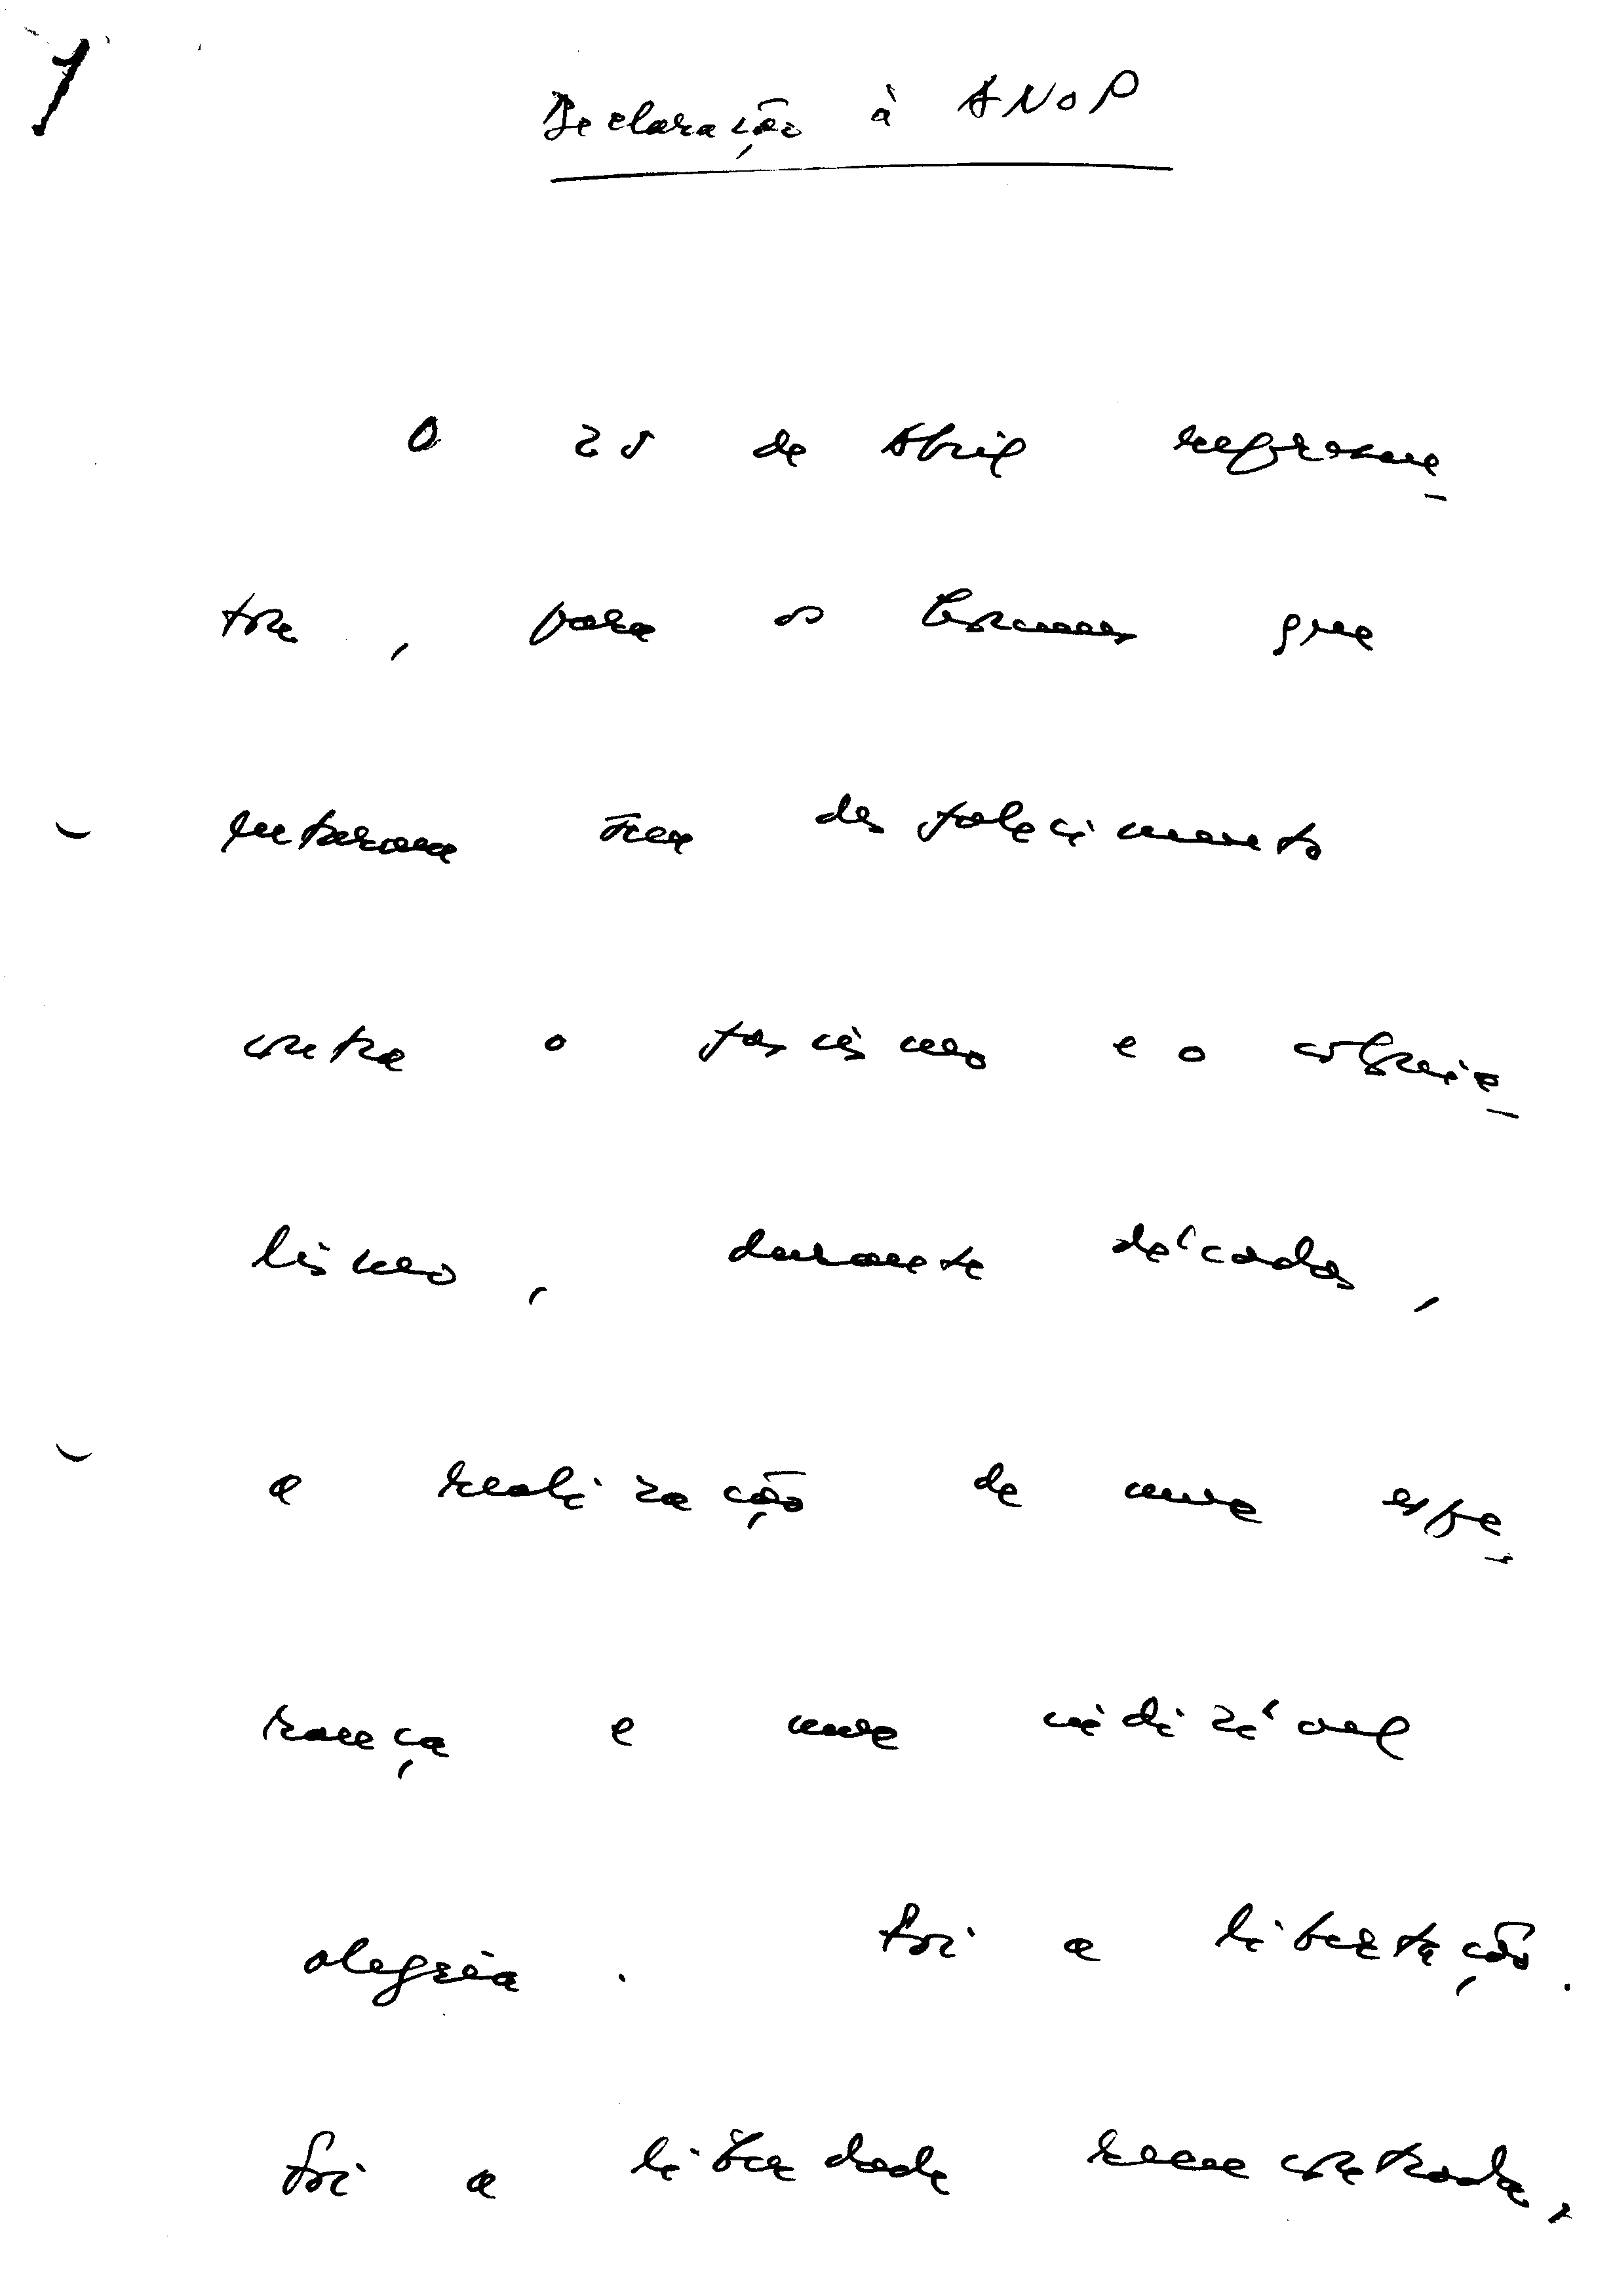 1
Declaração à ANOP
O 25 de Abril represen-
tou, para os homens que
lutaram sem desfalecimento
contra o fascismo e o colonia-
lismo, durante décadas,
a realização de uma espe-
rança e uma indizível
alegria. Foi a libertação.
Foi a liberdade reencontrada,